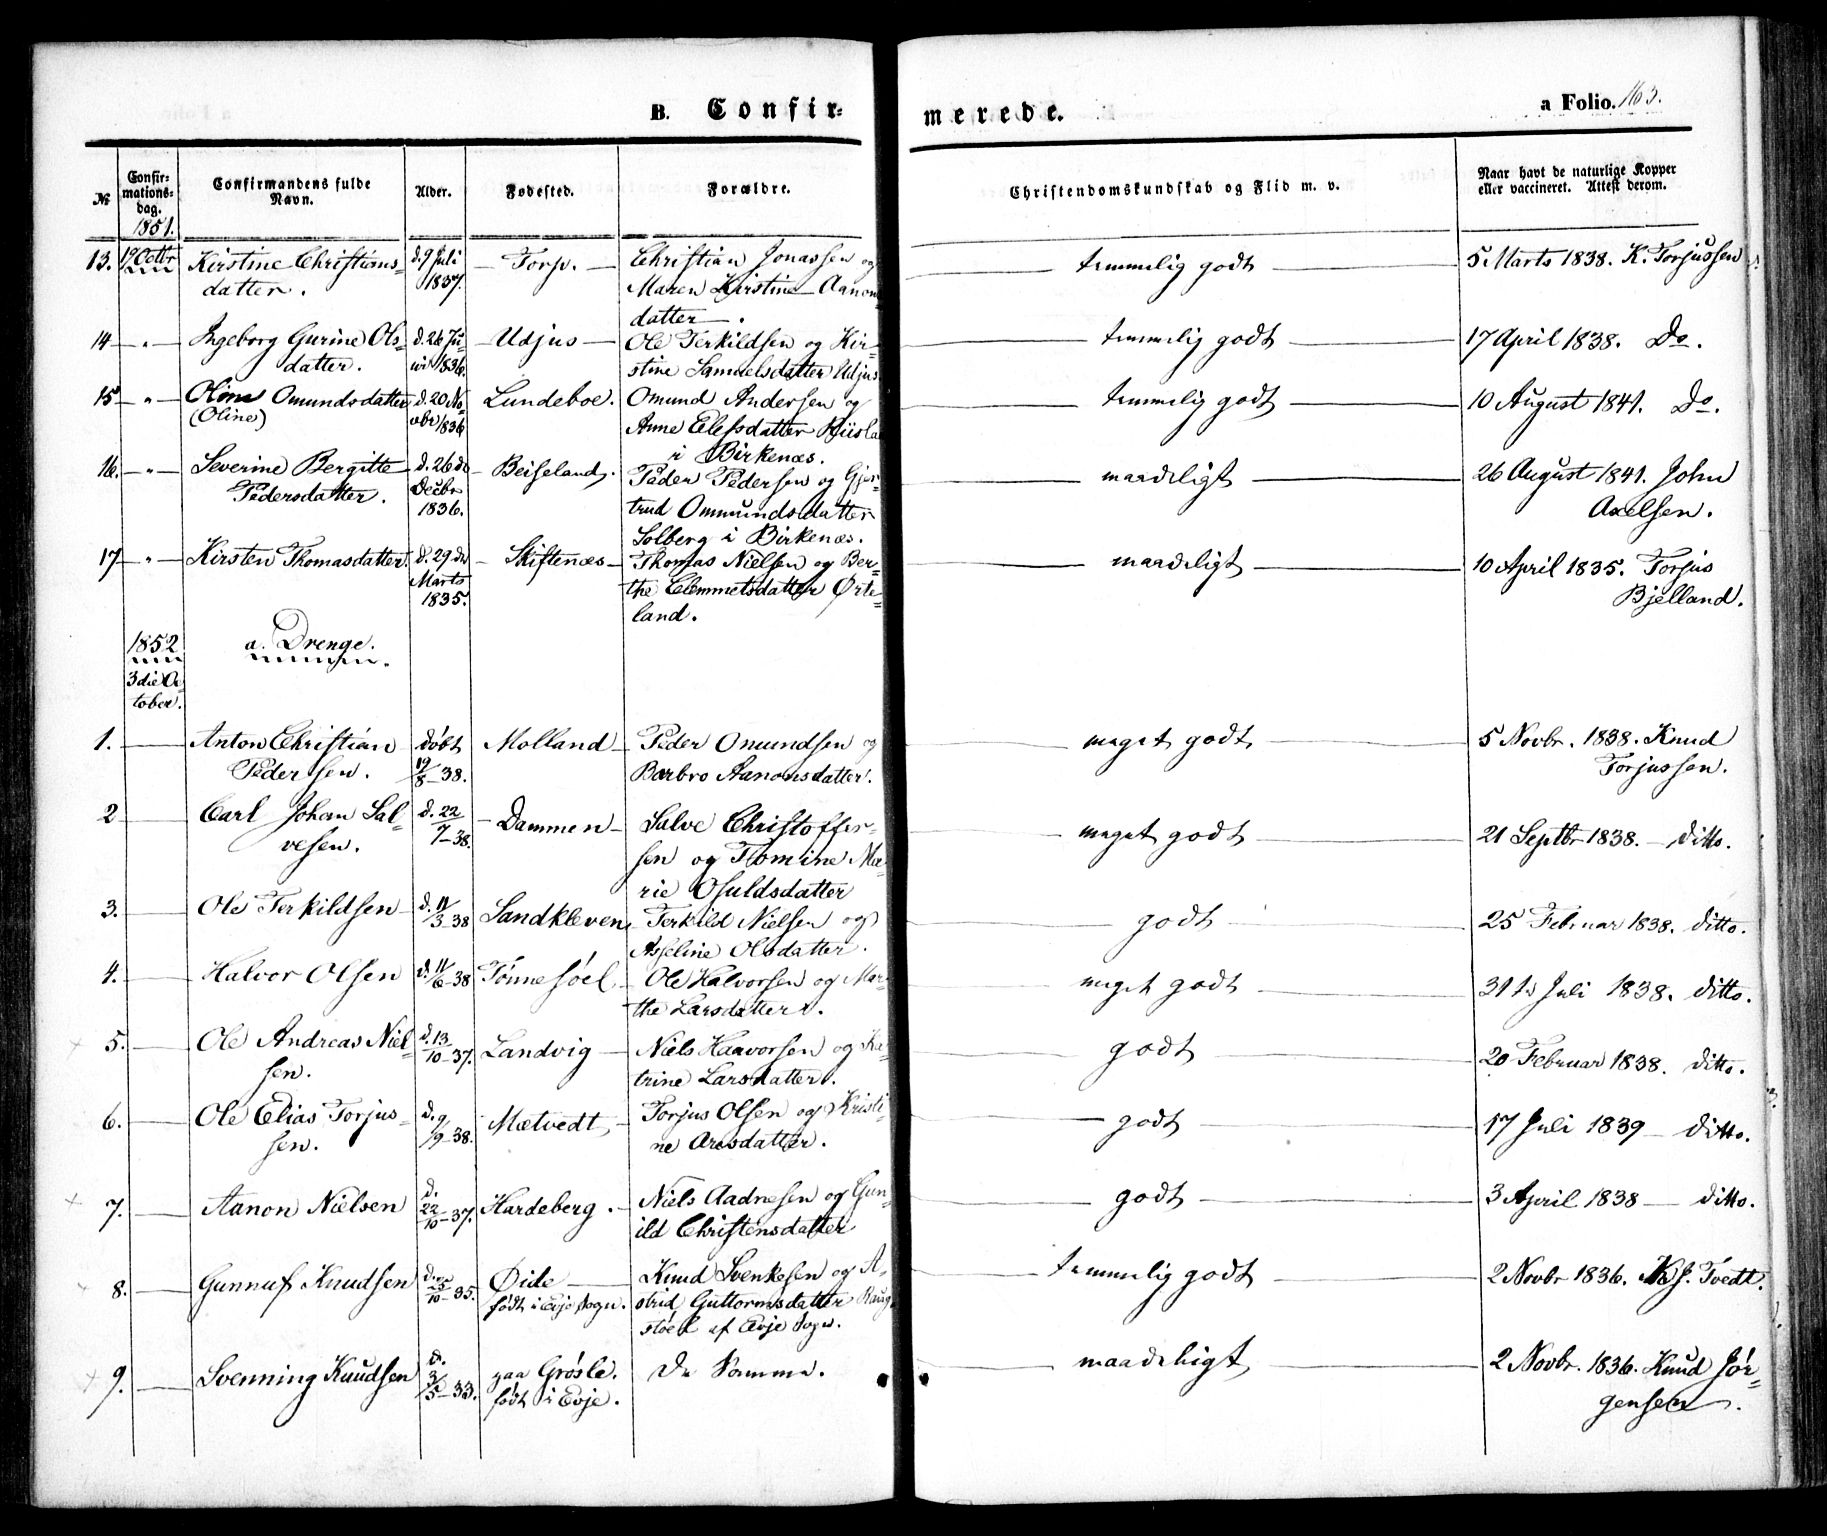 B. Confir-
merede.
a Folio. 163.
№
Confir-
mations-
dag.
1851.
Confirmandens fulde
Navn.
Alder.
Fødested.
Forældre.
Christendomskundskab og Flid m. v.
Naar havt de naturlige Kopper
eller vaccineret. Attest derom.
13. 19 Octbr Kirstine Christians- d. 9 Juli — Torp. — Christian Jonassen og — temmelig godt — 5 Marts 1838. K. Torjussen
datter. 1837. Maren Kirstine Aanons-
datter.
14 — „ — Ingeborg Gurine Ols- d. 26 Ju- — Udjus — Ole Terkildsen og Kir- — temmelig godt — 17 April 1838. Do.
datter. 1836. stine Samuelsdatter Udjus
15 — „ — Omundsdatter d. 20 No- Lundeboe. Omund Andersen og — temmelig godt — 10 August 1841. Do.
(Oline) vbr 1836 Anne Elefsdatter
i Birkenæs.
16. — „ — Severine Bergitte d. 26de — Beiseland. Peder Pedersen og Gjer- — maadeligt — 26 August 1841. John
Pedersdatter. Decbr trud Ommundsdatter Axelsen.
1836. Solberg i Birkenæs.
17 — „ — Kirsten Thomasdatter d. 29de — Skiftenæs — Thomas Nielsen og Ber- — maadeligt — 10 April 1835. Torjus
Marts the Clemmetsdatter Ørte- Bjelland.
1835. land.
1852 a. Drenge.
3die Oc-
tober.
1. — Anton Christian døbt Molland — Peder Omundsen og — meget godt — 5 Novbr. 1838. Knud
Pedersen. 19/8 — 38. Barbro Aanonsdatter. Torjussen.
2 — Carl Johan Sal- d. 22/7 — 38. — Dammen — Salve Christoffer- — meget godt — 21 Septbr 1838. — ditto.
vesen. sen og Tomine Ma-
rie Osuldsdatter
3. — Ole Terkildsen — d. 11/3 38 Sandkleven Terkild Nielsen og — godt — 25 Februar 1838. ditto.
Asseline Olsdatter.
4. — Halvor Olsen d. 11/6 — 38 Tønnesøel — Ole Halvorsen og Mar- — meget godt — 31te Juli 1838. ditto.
the Larsdatter.
5. — Ole Andreas Niel- d. 13/10 — 37. Landvig — Niels Haavorsen og Ka- — godt — 20 Februar 1838. ditto.
sen. trine Larsdatter.
6. — Ole Elias Torjus- d. 9/9 — 38. Mætvedt — Torjus Olsen og Kristi- — godt — 17 Juli 1839 — ditto.
sen. ne Aresdatter.
7. — Aanon Nielsen d. 22/10 — 37. Hardeberg. — Niels Aadnesen og Gun- — godt — 3 April 1838 — ditto.
ild Christensdatter
8. — Gunnuf Knudsen d. 25/10 — 35. Øide — Knud Svenkesen og A- — temmelig godt — 2 Novbr 1836. Tvedt.
født i Evje Sogn. strid Guttormsdatter Haug-
støel af Evje Sogn.
9. — Svenning Knudsen d. 3/5 — 33. paa Grøsle. De Samme. — maadeligt — 2 Novbr. 1836. Knud Jør-
født i Evje. gensen.